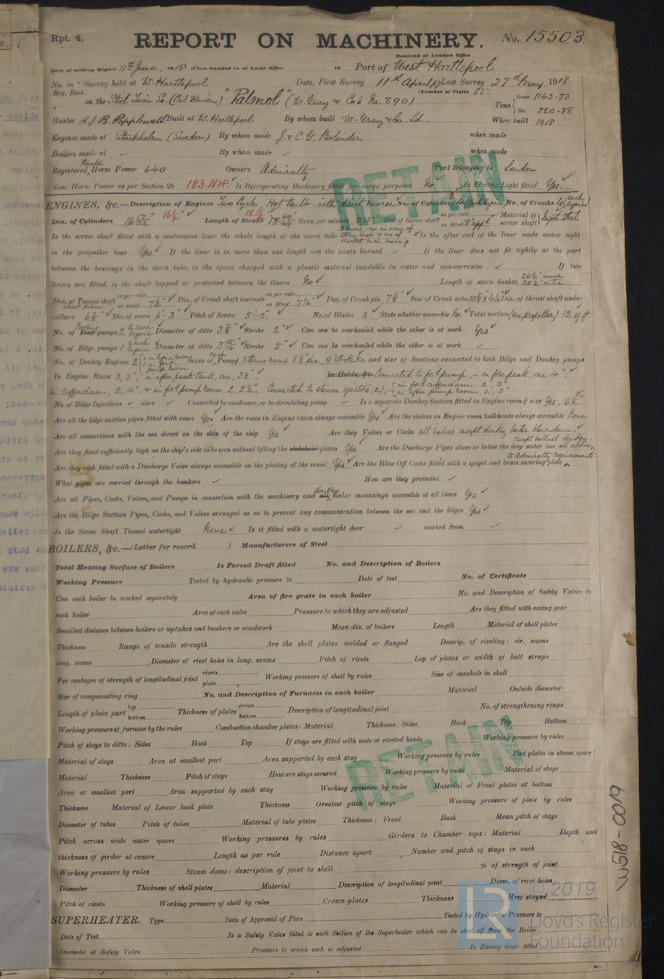 Rpt. 4.
REPORT ON MACHINERY.
No. 15503
Received at London Office
Date of writing Report 11th June 1918 When handed in at Local Office 10 Port of West Hartlepool
No. in Survey held at W. Hartlepool Date, First Survey 11th April Last Survey 27th May 1918
Reg. Book. (Number of Visits
on the Steel Twin Sc. (Oil Driven) "Palmol" (W. Gray & Co's No. 890)
Tons Gross 1143-73
Net 520-85
Master Built at W. Hartlepool By whom built W. Gray & Co. Ld. When built 1918
Engines made at Stockholm (Sweden) By whom made J. & C. G. Bolinder when made
Boilers made at By whom made when made
Registered Horse Power 640 Owners Admiralty Port belonging to London
Nom. Horse Power as per Section 28 183 N.H.P. Is Refrigerating Machinery fitted for cargo purposes No. Is Electric Light fitted Yes.
RETAIN
ENGINES, &c.—Description of Engines Two Cycle, Hot Bulb with direct reverse No. of Cylinders No. of Cranks
Dia. of Cylinders Length of Stroke Revs. per minute Dia. of Screw shaft as per rule as fitted Material of screw shaft
Is the screw shaft fitted with a continuous liner the whole length of the stern tube Is the after end of the liner made water tight
in the propeller boss Yes If the liner is in more than one length are the joints burned If the liner does not fit tightly at the part
between the bearings in the stern tube, is the space charged with a plastic material insoluble in water and non-corrosive If two
liners are fitted, is the shaft lapped or protected between the liners No Length of stern bushes
Dia. of Tunnel shaft as per rule Dia. of Crank shaft journals as per rule Dia. of Crank pin 7½" Size of Crank webs Dia. of thrust shaft under
collars Dia. of screw 6'-3" Pitch of Screw 5'-0" No. of Blades 3 State whether moveable No Total surface (ea. propeller) 12 sq. ft.
No. of pumps Diameter of ditto Stroke 2" Can one be overhauled while the other is at work Yes
No. of Bilge pumps Diameter of ditto Stroke 5" Can one be overhauled while the other is at work
No. of Donkey Engines Sizes of Pumps No. and size of Suctions connected to both Bilge and Donkey pumps
In Engine Room in after peak tank, one Connected to for'd pump - in fore peak, one 4"
in cofferdam, 2, & in for'd pump room Connected to steam ejectors (2) in for'd cofferdam 2, 3"
in after pump room, 2, 3"
No. of Bilge Injections sizes Connected to condenser, or to circulating pump Is a separate Donkey Suction fitted in Engine room & size Yes,
Are all the bilge suction pipes fitted with roses Yes Are the roses in Engine room always accessible Yes Are the sluices on Engine room bulkheads always accessible None
Are all connections with the sea direct on the skin of the ship Yes Are they Valves or Cocks all valves except donkey boiler blow-down.
Are they fixed sufficiently high on the ship's side to be seen without lifting the stokehold plates Yes Are the Discharge Pipes above or below the deep water line
to Admiralty requirements.
Are they each fitted with a Discharge Valve always accessible on the plating of the vessel Yes Are the Blow Off Cocks fitted with a spigot and brass covering plate
What pipes are carried through the bunkers How are they protected
Are all Pipes, Cocks, Valves, and Pumps in connection with the machinery and donkey boiler mountings accessible at all times Yes
Are the Bilge Suction Pipes, Cocks, and Valves arranged so as to prevent any communication between the sea and the bilges Yes
Is the Screw Shaft Tunnel watertight None Is it fitted with a watertight door worked from
BOILERS, &c.—(Letter for record ) Manufacturers of Steel
Total Heating Surface of Boilers Is Forced Draft fitted No. and Description of Boilers
Working Pressure Tested by hydraulic pressure to Date of test No. of Certificate
Can each boiler be worked separately Area of fire grate in each boiler No. and Description of Safety Valves to
each boiler Area of each valve Pressure to which they are adjusted Are they fitted with easing gear
Smallest distance between boilers or uptakes and bunkers or woodwork Mean dia. of boilers Length Material of shell plates
Thickness Range of tensile strength Are the shell plates welded or flanged Descrip. of riveting: cir. seams
long. seams Diameter of rivet holes in long. seams Pitch of rivets Lap of plates or width of butt straps
Per centages of strength of longitudinal joint rivets plate Working pressure of shell by rules Size of manhole in shell
Size of compensating ring No. and Description of Furnaces in each boiler Material Outside diameter
Length of plain part top bottom Thickness of plates crown bottom Description of longitudinal joint No. of strengthening rings
Working pressure of furnace by the rules Combustion chamber plates: Material Thickness: Sides Back Top Bottom
Pitch of stays to ditto: Sides Back Top If stays are fitted with nuts or riveted heads Working pressure by rules
Material of stays Area at smallest part Area supported by each stay Working pressure by rules End plates in steam space:
Material Thickness Pitch of stays How are stays secured Working pressure by rules Material of stays
Area at smallest part Area supported by each stay Working pressure by rules Material of Front plates at bottom
Thickness Material of Lower back plate Thickness Greatest pitch of stays Working pressure of plate by rules
Diameter of tubes Pitch of tubes Material of tube plates Thickness: Front Back Mean pitch of stays
Pitch across wide water spaces Working pressures by rules Girders to Chamber tops: Material Depth and
thickness of girder at centre Length as per rule Distance apart Number and pitch of stays in each
Working pressure by rules Steam dome: description of joint to shell % of strength of joint
Diameter Thickness of shell plates Material Description of longitudinal joint Diam. of rivet holes
Pitch of rivets Working pressure of shell by rules Crown plates Thickness How stayed
RETAIN
SUPERHEATER. Type Date of Approval of Plan Tested by Hydraulic Pressure to
Date of Test Is a Safety Valve fitted to each Section of the Superheater which can be shut off from the Boiler
Diameter of Safety Valve Pressure to which each is adjusted Is Easing Gear fitted
W518-0019
LR
© 2019
Lloyd's Register
Foundation